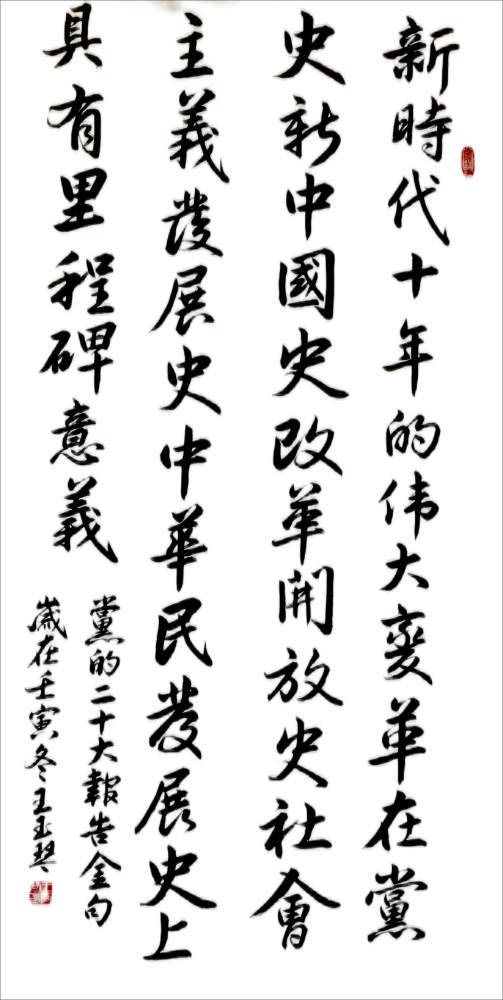 新時代十年的伟大变革在黨
史新中國史改革開放史社會
主義發展史中華民發展史上
具有里程碑意義
黨的二十大報告金句
歲在壬寅冬王玉琴